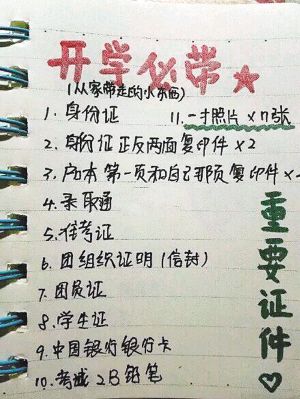 开学必带★
(从家带走的小东西)
1.身份证
11.一寸照片×n张
2.身份证正反两面复印件×2
3.户口本 第一页和自己那页复印件×
4.录取通
5.准考证
6.团组织证明(信封)
7.团员证
8.学生证
9.中国银行银行卡
10.考试2B铅笔
重要证件♡